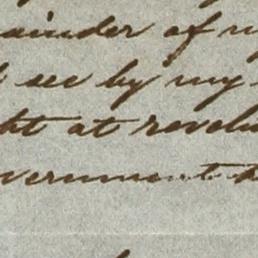 ainder of m
see by my
ht at revolu
vernment